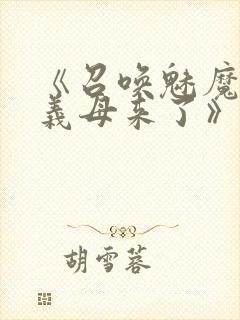 《召唤魅魔
義母来了》
胡雪蓉